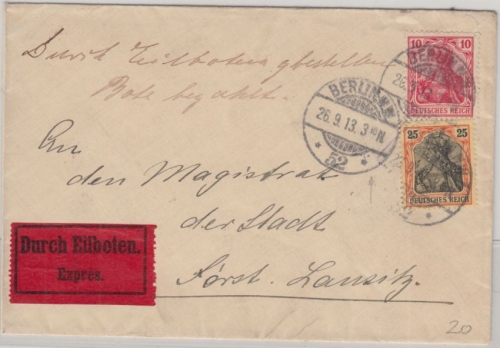 Durch Eilboten zu bestellen
Bote bezahlt.
10
DEUTSCHES REICH
25 25
DEUTSCHES REICH
BERLIN
26.9.13. 3 N.
* 52
BERLIN
26.
An
den Magistrat
der Stadt
Forst. Lausitz.
Durch Eilboten.
Exprès.
20